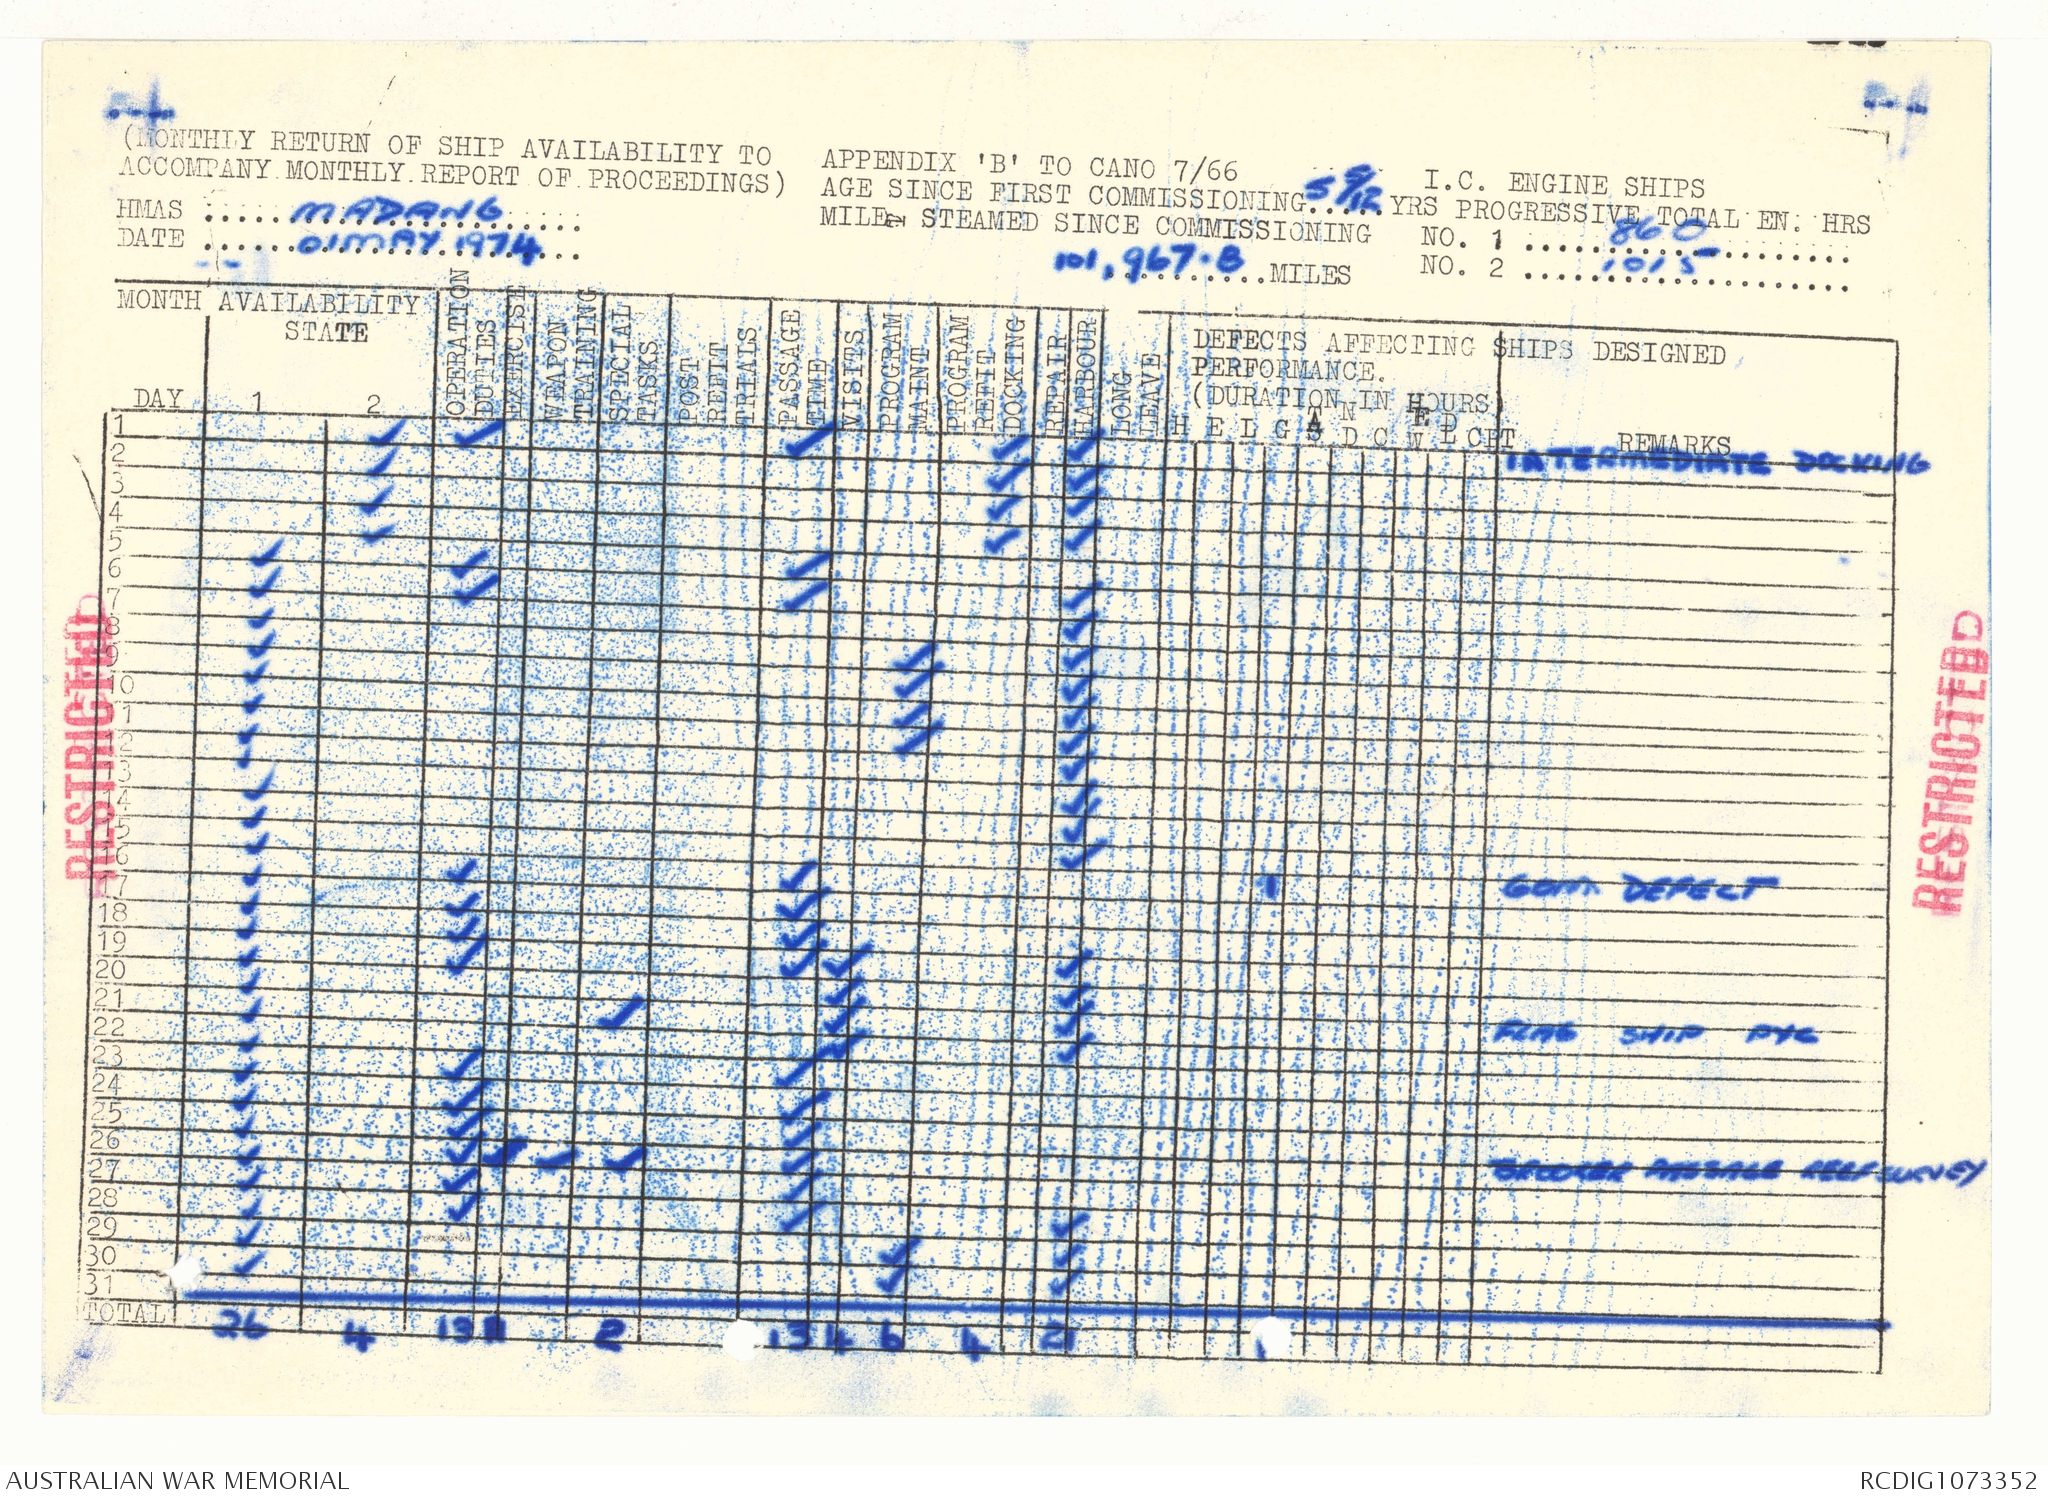 (MONTHLY RETURN OF SHIP AVAILABILITY TO
ACCOMPANY MONTHLY REPORT OF PROCEEDINGS)
HMAS MADANG
DATE 01 MAY 1974
APPENDIX 'B' TO CANO 7/66
AGE SINCE FIRST COMMISSIONING 5 5/12 YRS
MILES STEAMED SINCE COMMISSIONING
101,967.8 MILES
I.C. ENGINE SHIPS
PROGRESSIVE TOTAL EN. HRS
NO. 1 860
NO. 2 1015
MONTH AVAILABILITY
STATE
DAY 1 2
OPERATION DUTIES
EXERCISE
WEAPON TRAINING
SPECIAL TASKS
POST REFIT TRIALS
PASSAGE TIME
VISITS
PROGRAM MAINT
PROGRAM REFIT
DOCKING
REPAIR
HARBOUR
LONG LEAVE
DEFECTS AFFECTING SHIPS DESIGNED
PERFORMANCE.
(DURATION IN HOURS)
REMARKS
1
2 INTERMEDIATE DOCKING
3
4
5
6
7
8
9
10
11
12
13
14
15
16
17 1 DEFECT
18
19
20
21
22 FLAG SHIP
23
24
25
26
27 PASSAGE REEF SURVEY
28
29
30
31
TOTAL 26 4 13 2 13 4 6 4 21 1
RESTRICTED
RESTRICTED
AUSTRALIAN WAR MEMORIAL
RCDIG1073352